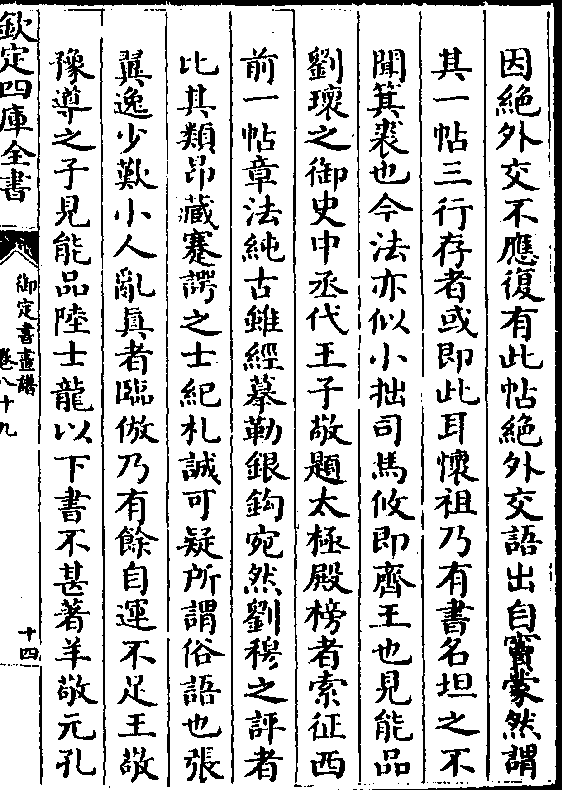 因絶外交不應復有此帖絶外交語出自竇蒙然謂
其一帖三行存者或即此耳懷祖乃有書名坦之不
聞箕裘也今法亦似小拙司馬攸即齊王也見能品
劉瓌之御史中丞代王子敬題太極殿榜者索征西
前一帖章法純古雖經摹勒銀鈎宛然劉穆之評者
比其類昂藏蹇諤之士紀札誠可疑所謂俗語也張
翼逸少歎小人亂真者臨倣乃有餘自運不足王敬
豫導之子見能品陸士龍以下書不甚著羊敬元孔
欽定四庫全書
御定書畫譜
卷八十九
十四